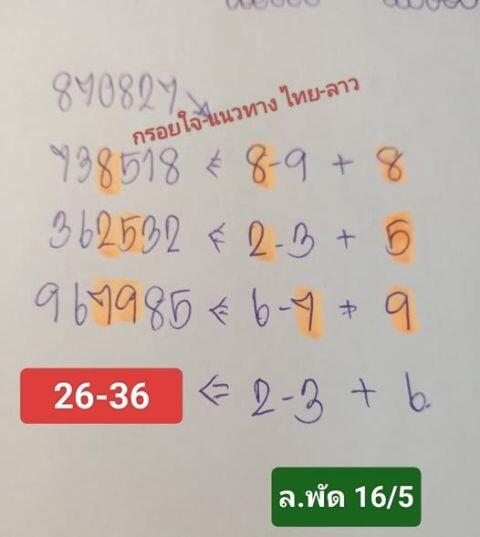 870827
กรอยใจ-แนวทาง ไทย-ลาว
738518 ⇐ 8-9 + 8
362532 ⇐ 2-3 + 5
967985 ⇐ 6-7 + 9
26-36 ⇐ 2-3 + 6
ล.พัด 16/5